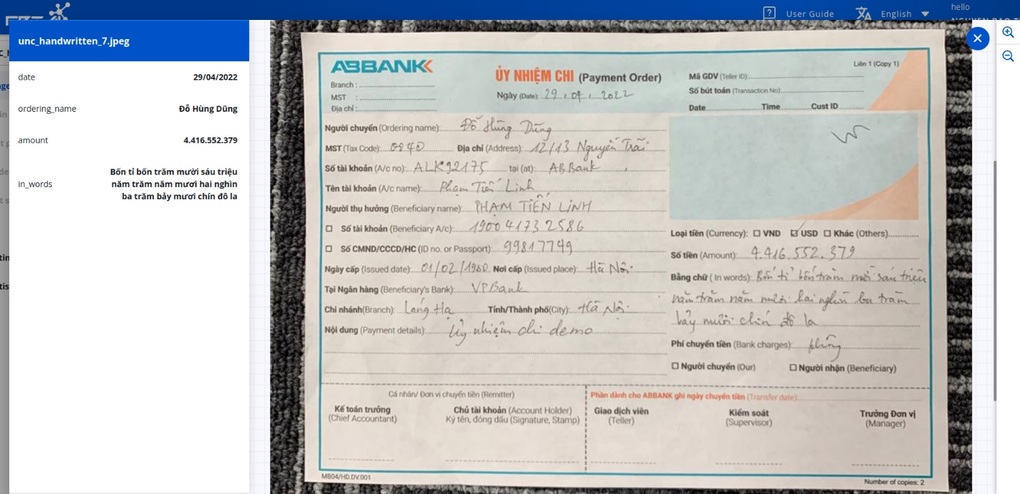 hello
User Guide
English
unc_handwritten_7.jpeg
date 29/04/2022
ordering_name Đỗ Hùng Dũng
amount 4.416.552.379
in_words Bốn tỉ bốn trăm mười sáu triệu
năm trăm năm mươi hai nghìn
ba trăm bảy mươi chín đô la
ABBANK
Branch :
MST :
Địa chỉ :
ỦY NHIỆM CHI (Payment Order)
Ngày (Date): 29.04.2022
Liên 1 (Copy 1)
Mã GDV (Teller ID):
Số bút toán (Transaction No):
Date Time Cust ID
Người chuyển (Ordering name): Đỗ Hùng Dũng
MST (Tax Code): 0840 Địa chỉ (Address): 12/13 Nguyễn Trãi
Số tài khoản (A/c no): ALK92175 tại (at): ABBank
Tên tài khoản (A/c name): Phạm Tiến Linh
Người thụ hưởng (Beneficiary name): PHẠM TIẾN LINH
Số tài khoản (Beneficiary A/c): 19004173 2586
Số CMND/CCCD/HC (ID no. or Passport): 99817749
Ngày cấp (Issued date): 01/02/1980 Nơi cấp (Issued place): Hà Nội
Tại Ngân hàng (Beneficiary's Bank): VPBank
Chi nhánh(Branch): Láng Hạ Tỉnh/Thành phố(City): Hà Nội
Nội dung (Payment details): Ủy nhiệm chi demo
Loại tiền (Currency): VND USD Khác (Others)
Số tiền (Amount): 4.416.552.379
Bằng chữ ( In words): Bốn tỉ bốn trăm mười sáu triệu
năm trăm năm mươi hai nghìn ba trăm
bảy mươi chín đô la
Phí chuyển tiền (Bank charges): không
Người chuyển (Our) Người nhận (Beneficiary)
Cá nhân/ Đơn vị chuyển tiền (Remitter)
Kế toán trưởng
(Chief Accountant)
Chủ tài khoản (Account Holder)
Ký tên, đóng dấu (Signature, Stamp)
Phần dành cho ABBANK ghi ngày chuyển tiền (Transfer date)
Giao dịch viên
(Teller)
Kiểm soát
(Supervisor)
Trưởng Đơn vị
(Manager)
MB04/HD.DV.001
Number of copies: 2